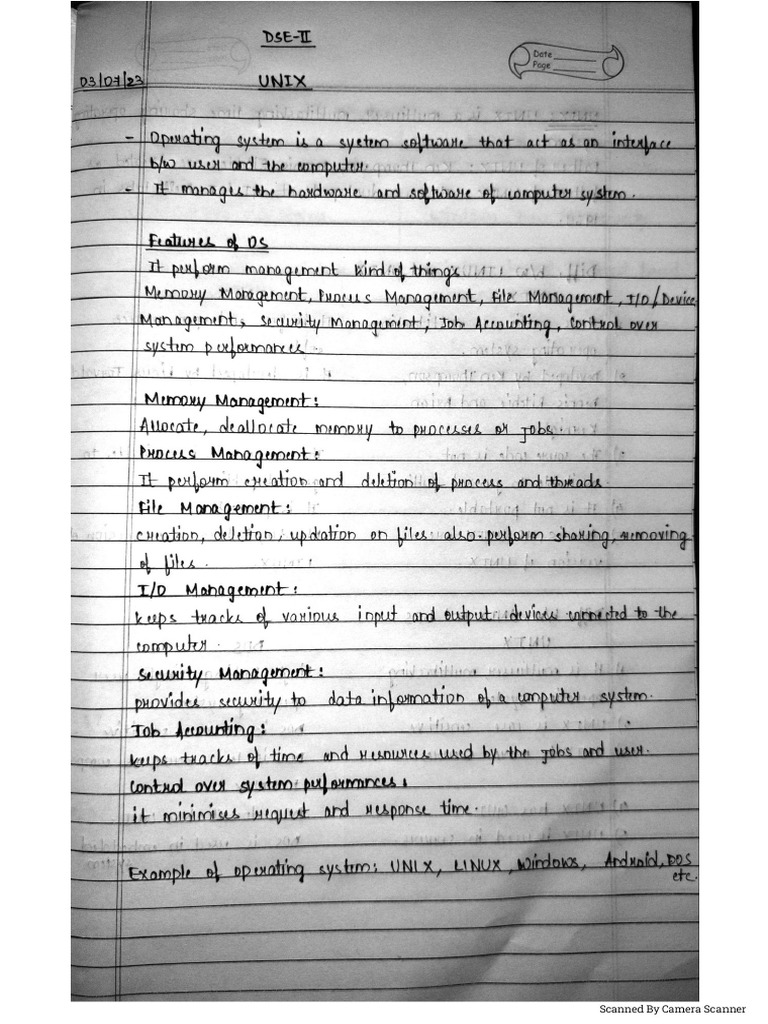 DSE-II
Date
Page
03/07/23
UNIX
- Operating system is a system software that act as an interface
b/w user and the computer.
- It manages the hardware and software of computer system.
Features of OS
It perform management kind of things
Memory Management, Process Management, File Management, I/O/Device
Management, Security Management, Job Accounting, Control over
system performances
Memory Management:
Allocate, deallocate memory to processes or jobs.
Process Management:
It perform creation and deletion of process and threads.
File Management:
creation, deletion, updation on files also perform sharing, removing
of files.
I/O Management:
keeps tracks of various input and output devices connected to the
computer.
Security Management:
provides security to data information of a computer system.
Job Accounting:
keeps tracks of time and resources used by the jobs and user.
Control over system performances:
it minimises request and response time.
Example of operating system: UNIX, LINUX, Windows, Android, DOS
etc.
Scanned By Camera Scanner